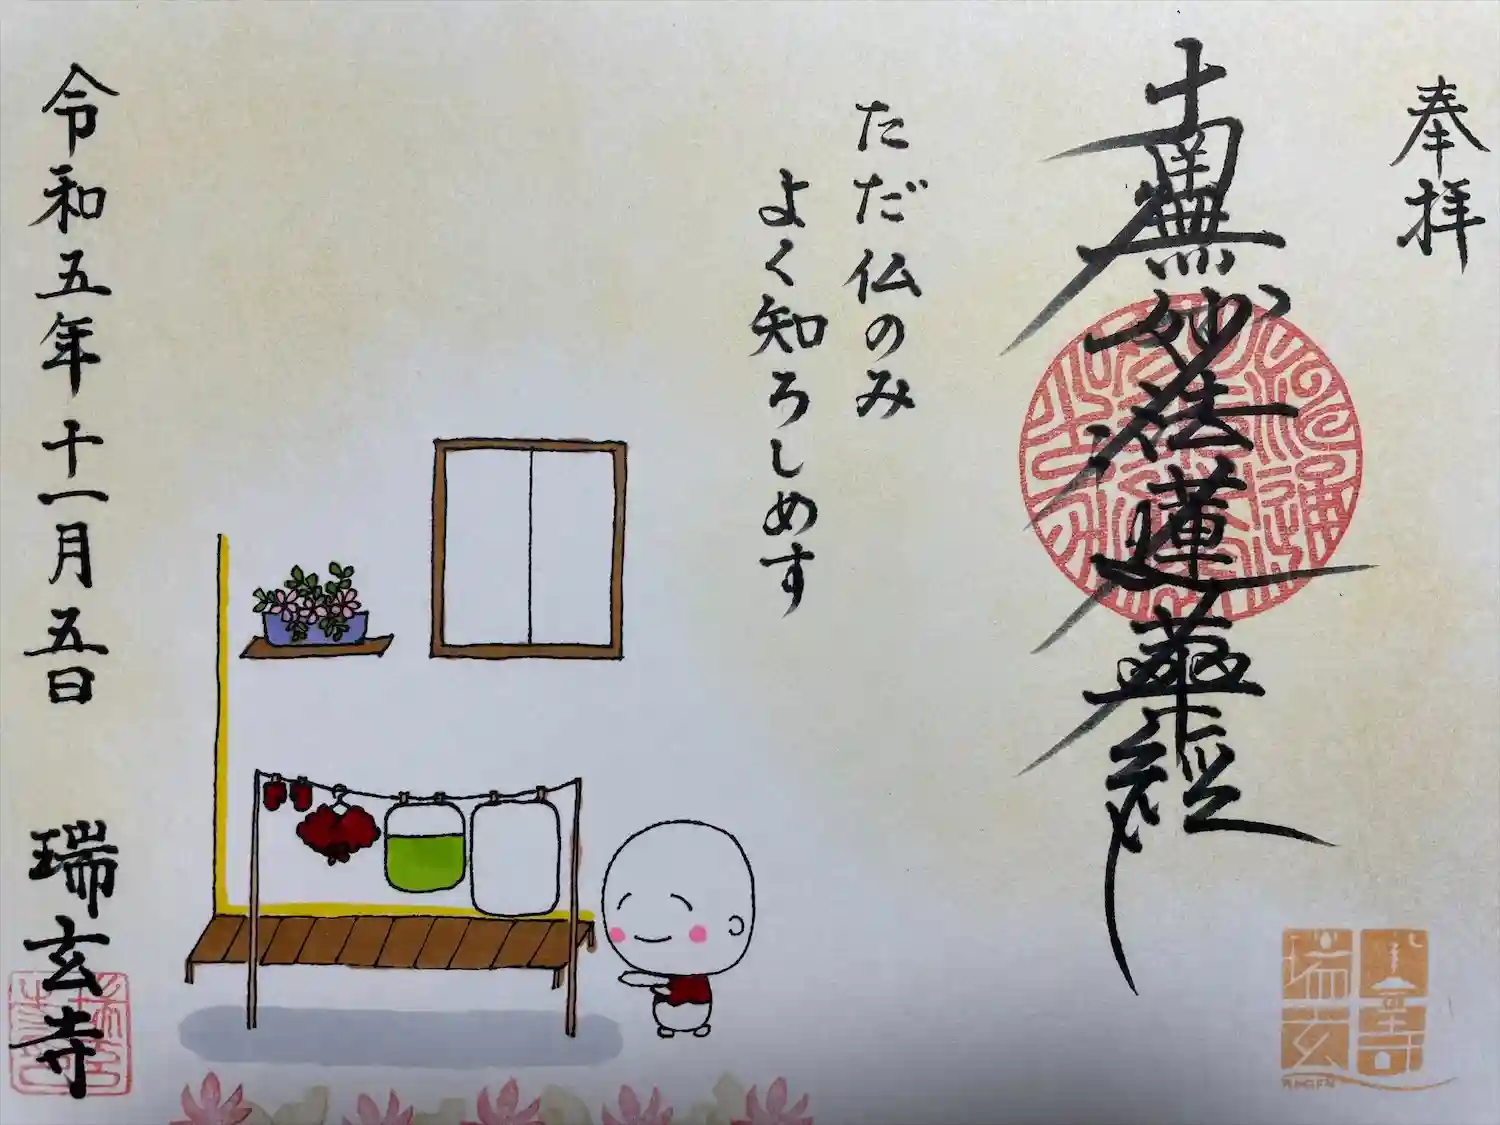 奉拝
南無妙法蓮華経
ただ仏のみ
よく知ろしめす
令和五年十一月五日
瑞玄寺
瑞玄寺